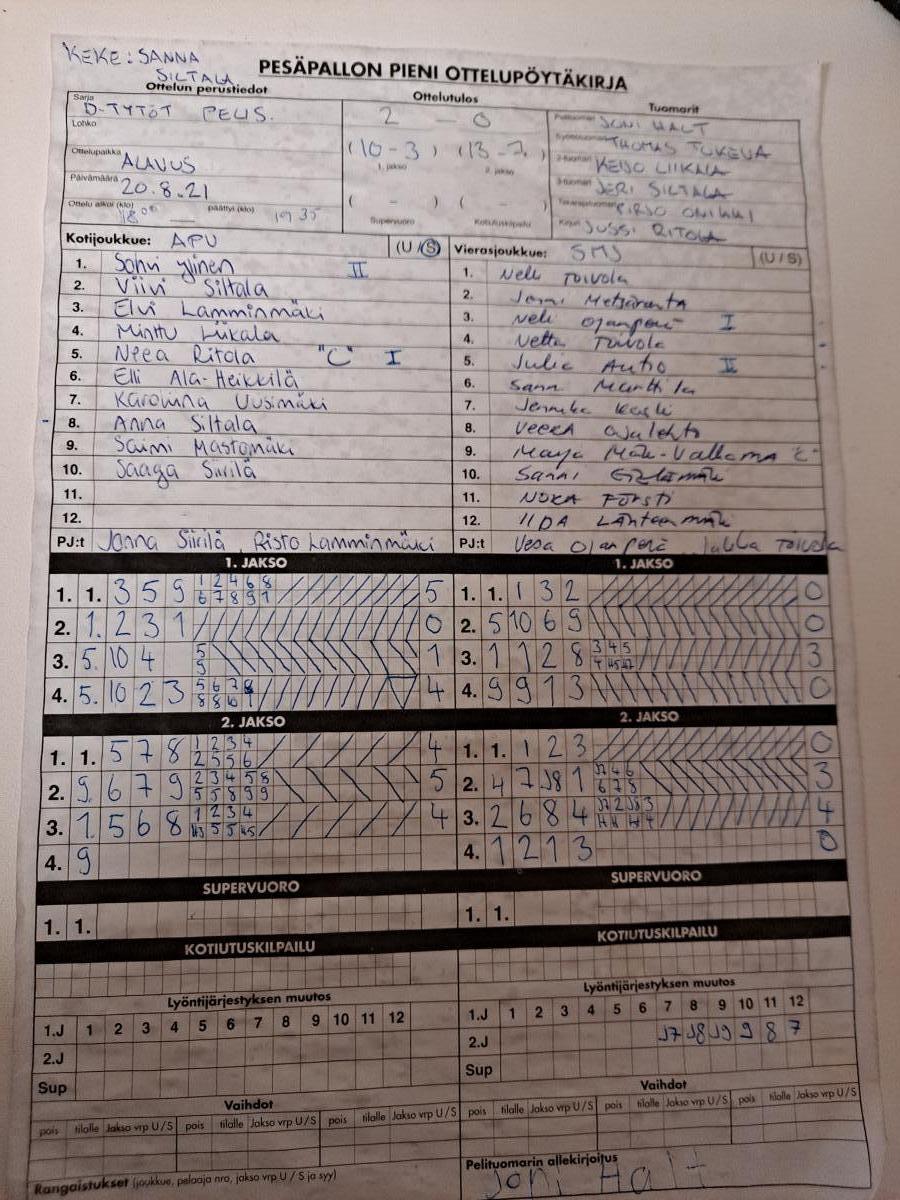 KEKE: SANNA
SILTALA
PESÄPALLON PIENI OTTELUPÖYTÄKIRJA
Ottelun perustiedot
Ottelutulos
Tuomarit
Sarja
D-TYTÖT PELIS.
Lohko
Ottelupaikka
ALAVUS
Päivämäärä
20.8.21
Ottelu alkoi (klo) 18 00 päättyi (klo) 19 35
2 - 0
(10-3) (13-7)
1. jakso 2. jakso
( - ) ( - )
Supervuoro Kotiutuskilpailu
JONI HALT
THOMAS TUKEVA
KEIJO LIIKALA
JERI SILTALA
JUSSI RITOLA
Kotijoukkue: APU (U/S)
1. Sohvi Ylinen II
2. Viivi Siltala
3. Elvi Lamminmäki
4. Minttu Liikala
5. Neea Ritola "C" I
6. Elli Ala-Heikkilä
7. Karoliina Uusimäki
8. Anna Siltala
9. Saimi Mastomäki
10. Saaga Siirilä
11.
12.
PJ:t Jonna Siirilä Risto Lamminmäki
Vierasjoukkue: SMJ (U/S)
1. Neli Toivola
2. Jenni Metsäranta
3. Neli Ojanperä I
4. Netta Toivola
5. Julia Autio II
6. Sann Marttila
7.
8. VEERA
9. Maija Mäki-Valkama "C"
10. Sanni
11. NOORA FÖRSTI
12. IIDA Lähteenmäki
PJ:t Vesa Ojanperä Jukka Toivola
1. JAKSO
1. 1. 3 5 9 1 2 4 6 8 5
6 7 8 9 1
2. 1. 2 3 1 0
3. 5. 10 4 5 1
9
4. 5. 10 2 3 5 6 7 8 4
8 8 10 1
2. JAKSO
1. 1. 5 7 8 1 2 3 4 4
2 5 5 6
2. 9. 6 7 9 2 3 4 5 8 5
5 5 8 9 9
3. 1. 5 6 8 1 2 3 4 4
4. 9
SUPERVUORO
1. 1.
KOTIUTUSKILPAILU
Lyöntijärjestyksen muutos
1.J 1 2 3 4 5 6 7 8 9 10 11 12
2.J
Sup
Vaihdot
pois tilalle Jakso vrp U/S pois tilalle Jakso vrp U/S pois tilalle Jakso vrp U/S
Rangaistukset (joukkue, pelaaja nro, jakso vrp U/S ja syy)
1. JAKSO
1. 1. 1 3 2 0
2. 5 10 6 9 0
3. 1 1 2 8 3 4 5 3
4. 9 9 1 3 0
2. JAKSO
1. 1. 1 2 3 0
2. 4 7 J8 1 J7 4 6 3
6 7 8
3. 2 6 8 4 J7 2 J8 3 4
4. 1 2 1 3 0
SUPERVUORO
1. 1.
KOTIUTUSKILPAILU
Lyöntijärjestyksen muutos
1.J 1 2 3 4 5 6 7 8 9 10 11 12
2.J J7 J8 J9 9 8 7
Sup
Vaihdot
pois tilalle Jakso vrp U/S pois tilalle Jakso vrp U/S pois tilalle Jakso vrp U/S
Pelituomarin allekirjoitus
Joni Halt